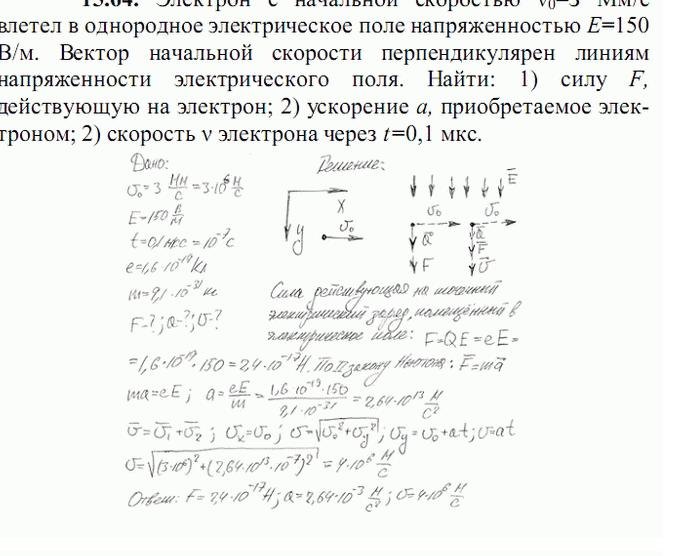 15.64. Электрон с начальной скоростью v₀=3 Мм/с
влетел в однородное электрическое поле напряженностью E=150
В/м. Вектор начальной скорости перпендикулярен линиям
напряженности электрического поля. Найти: 1) силу F,
действующую на электрон; 2) ускорение a, приобретаемое элек-
троном; 2) скорость v электрона через t=0,1 мкс.
Дано:
Решение:
υ₀=3 Мм/с=3·10⁶ м/с
E=150 В/м
t=0,1 мкс=10⁻⁷с
e=1,6·10⁻¹⁹Кл
m=9,1·10⁻³¹ кг
F-?; a-?; υ-?
X
y
υ₀
E̅
υ₀
υ₀
a̅
F
a̅
F̅
υ̅
Сила действующая на точечный
электрический заряд, помещённый в
электрическое поле: F=QE=eE=
=1,6·10⁻¹⁹·150=2,4·10⁻¹⁷Н. По II закону Ньютона: F̅=ma̅
ma=eE; a=eE/m=1,6·10⁻¹⁹·150/9,1·10⁻³¹=2,64·10¹³ м/с²
υ̅=υ̅₁+υ̅₂; υₓ=υ₀; υ=√(υ₀²+υy²); υy=υ₀+at; υ=at
υ=√((3·10⁶)²+(2,64·10¹³·10⁻⁷)²)=4·10⁶ м/с
Ответ: F=2,4·10⁻¹⁷Н; a=2,64·10⁻³ м/с²; υ=4·10⁶ м/с